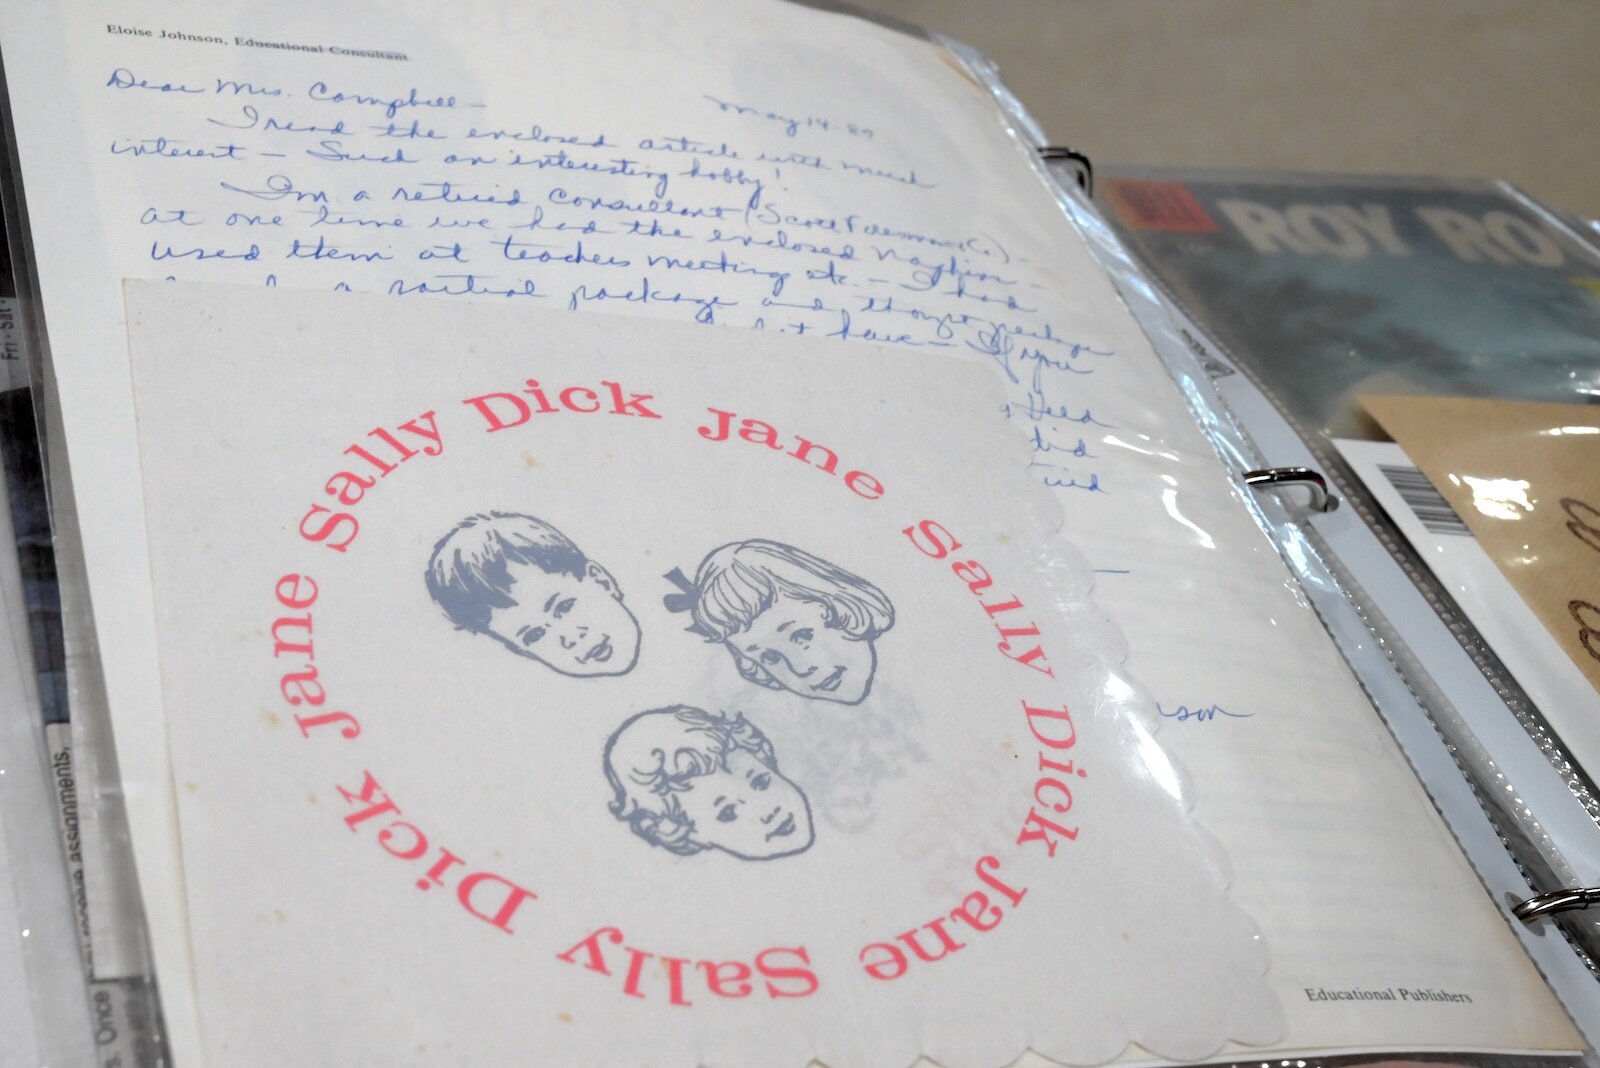 Eloise Johnson, Educational Consultant
Dear Mrs. Campbell -
May 14-89
I read the enclosed article with much
interest - Such an interesting hobby!
I'm a retired consultant (Scott Foresman & Co) -
at one time we had the enclosed napkins -
used them at teachers meeting etc. - I had
a partial package and thought perhaps
have - If you
Sally Dick Jane Sally Dick Jane Sally Dick Jane
son
Educational Publishers
ROY RO
Fri - Sat
receive assignments,
s. Once